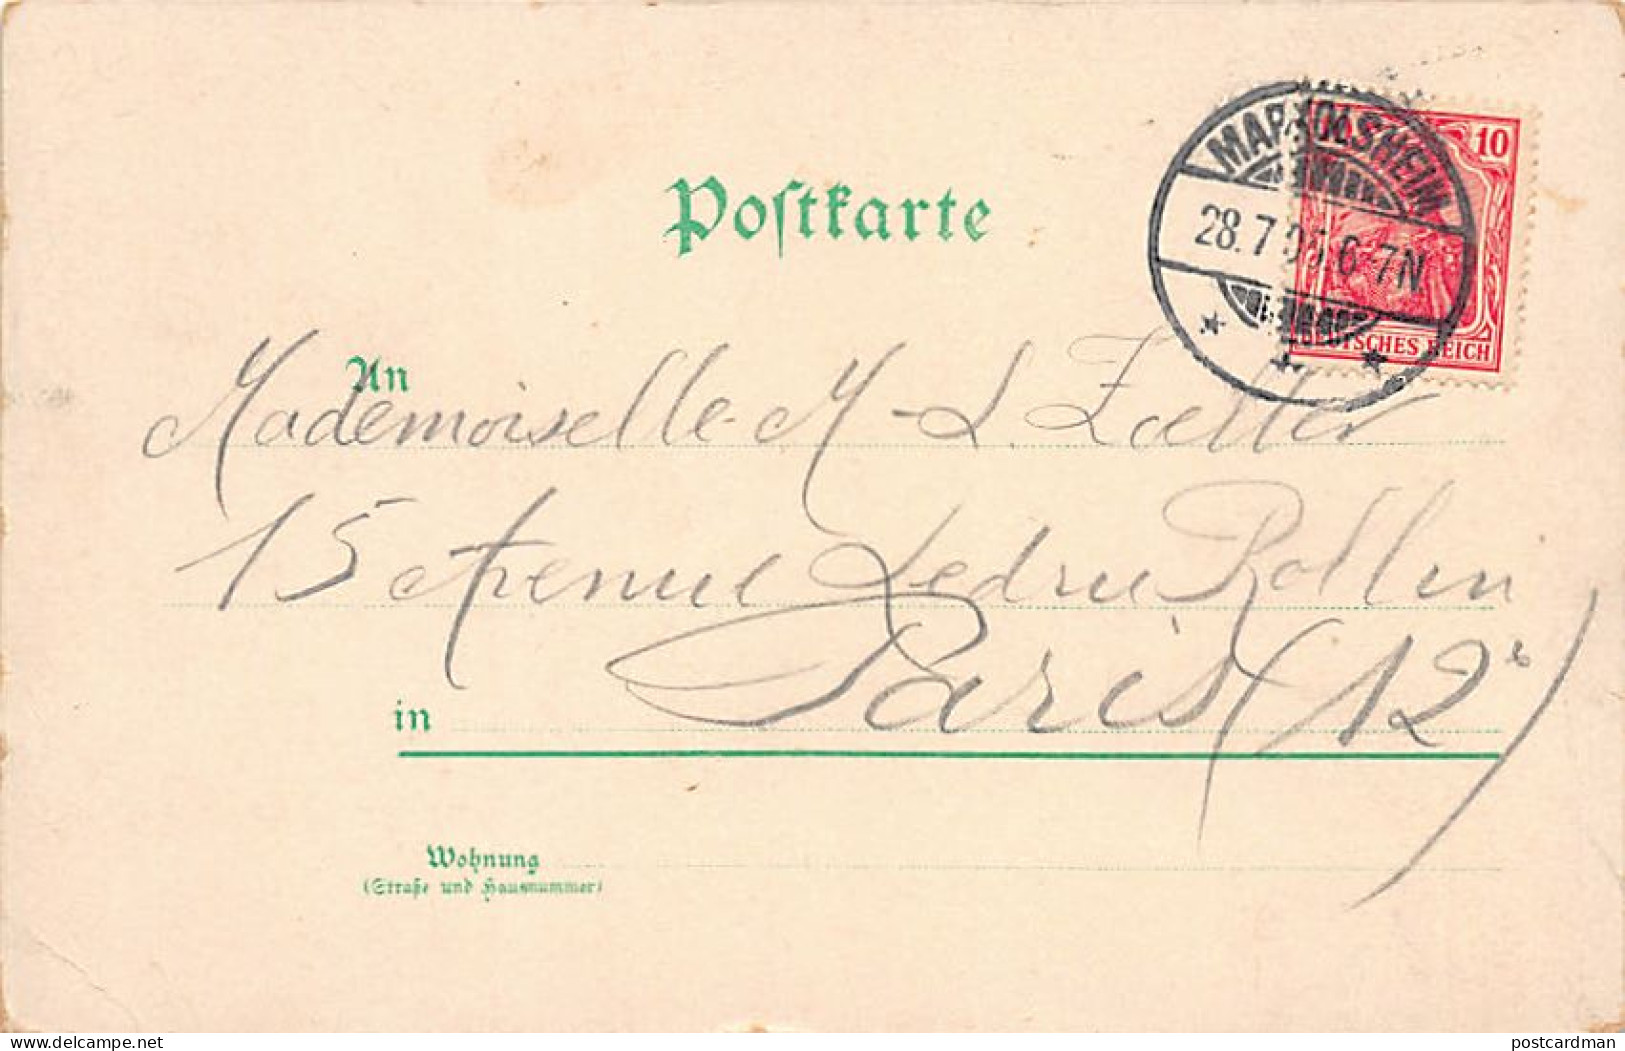 Postkarte
MARKOLSHEIM
28.7.05.6-7N
10
DEUTSCHES REICH
An
Mademoiselle M-L. Zoeller
15 Avenue Ledru Rollin
in Paris (12e)
Wohnung
(Straße und Hausnummer)
delcampe.net
postcardman